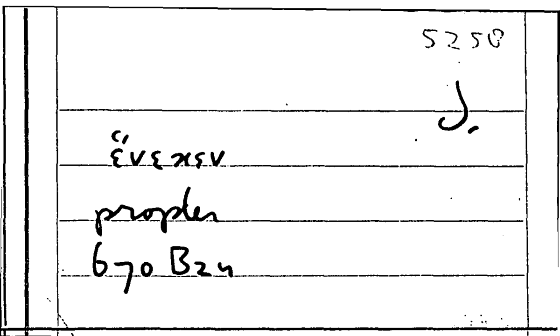 5258
J.
ἕνεκεν
propter
670 B24